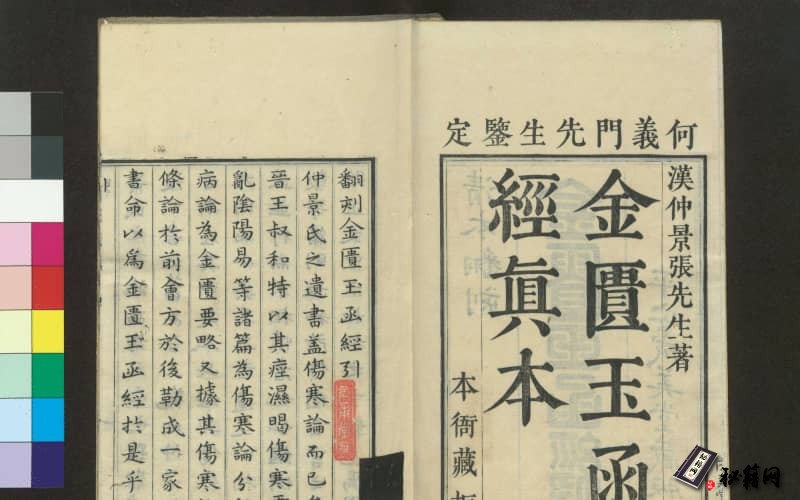 何義門先生鑒定
漢仲景張先生著
金匱玉函
經眞本
本衙藏
翻刻金匱玉函經引
仲景氏之遺書盖傷寒論而已
晉王叔和特以其痙濕暍傷寒
亂陰陽易等諸篇為傷寒論分
病論為金匱要略又據其傷寒
條論於前會方於後勒成一家
書命以爲金匱玉函經於是乎
秘籍网